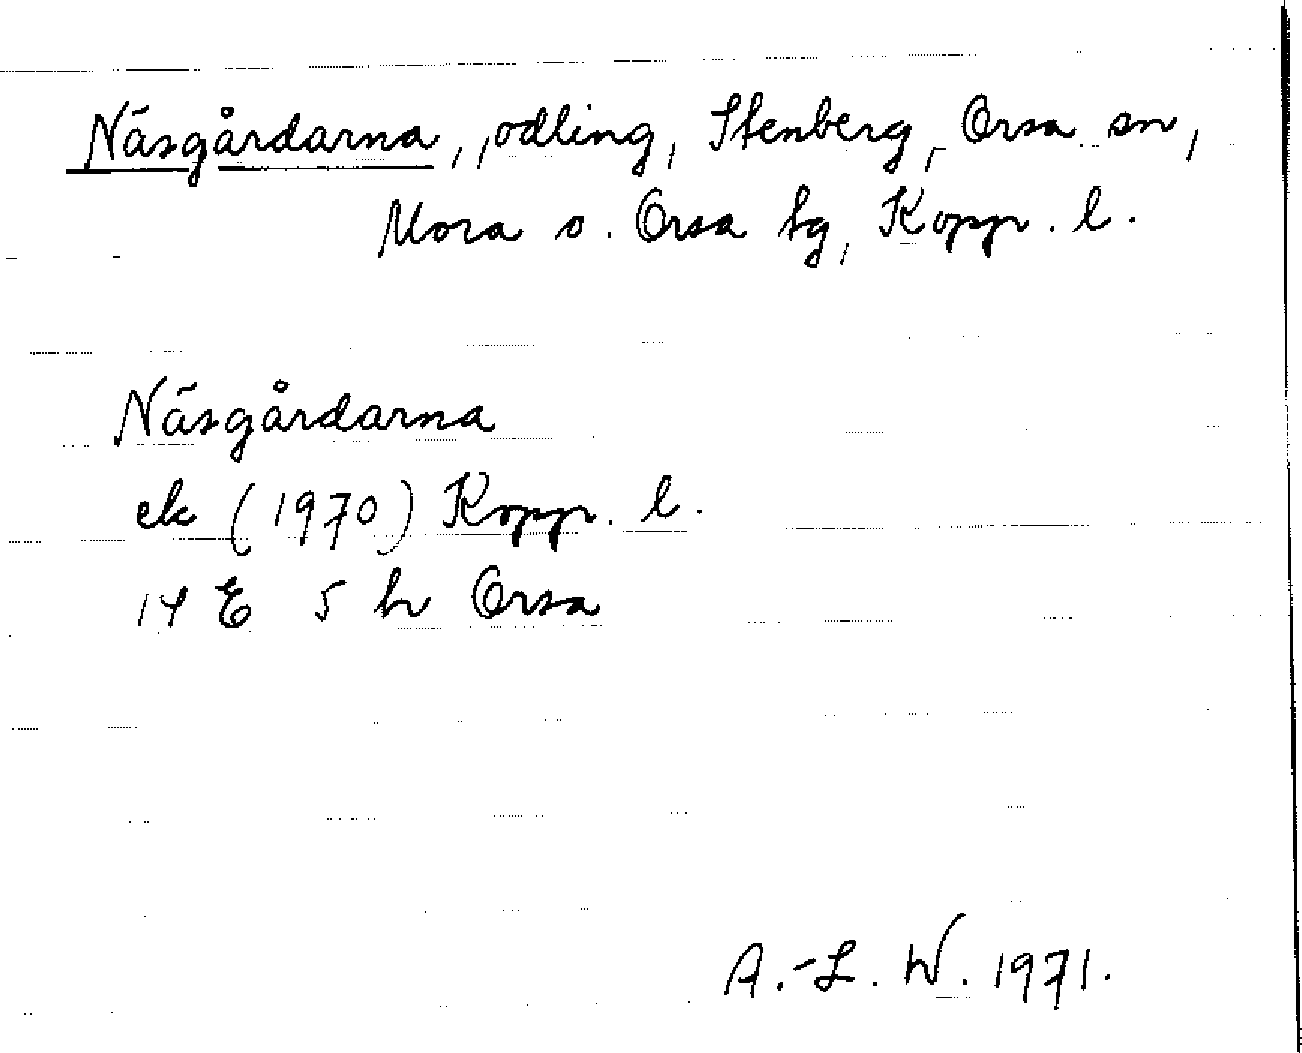 Näsgårdarna, odling, Stenberg, Orsa sn,
Mora o. Orsa tg, Kopp. l.
Näsgårdarna
ek (1970) Kopp. l.
14 E 5 h Orsa
A.-L. W. 1971.